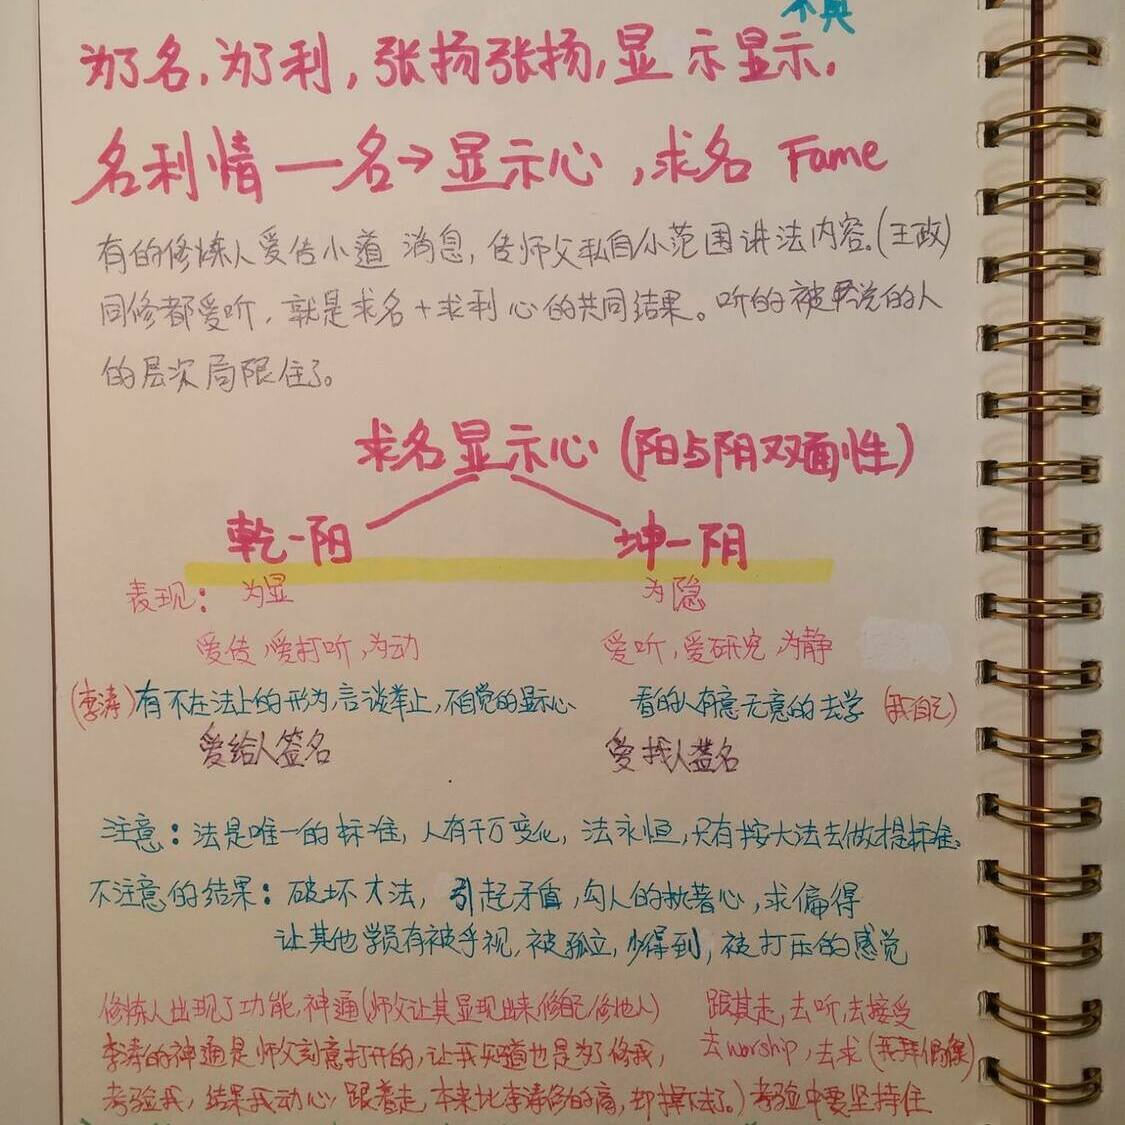 不真
为了名,为了利,张扬张扬,显示显示.
名利情一名→显示心,求名 Fame
有的修炼人爱传小道消息,传师父私自小范围讲法内容.(王政)
同修都爱听,就是求名+求利心的共同结果。听的被说的人
的层次局限住了。
求名显示心(阳与阴双面性)
乾-阳 坤-阴
表现: 为显 为隐
爱传,爱打听,为动 爱听,爱研究,为静
(李涛)有不在法上的形为,言谈举止,不自觉的显示心 看的人有意无意的去学 (我自己)
爱给人签名 爱找人签名
注意:法是唯一的标准,人有千万变化,法永恒,只有按大法去做提标准.
不注意的结果:破坏大法,引起矛盾,勾人的执著心,求偏得
让其他学员有被乎视,被孤立,少得到,被打压的感觉
修炼人出现了功能,神通(师父让其显现出来修自己修他人) 跟其走,去听,去接受
李涛的神通是师父刻意打开的,让我知道也是为了修我, 去worship,去求(我拜偶像)
考验我,结果我动心跟着走,本来比李涛修的高,却掉下去了.)考验中要坚持住